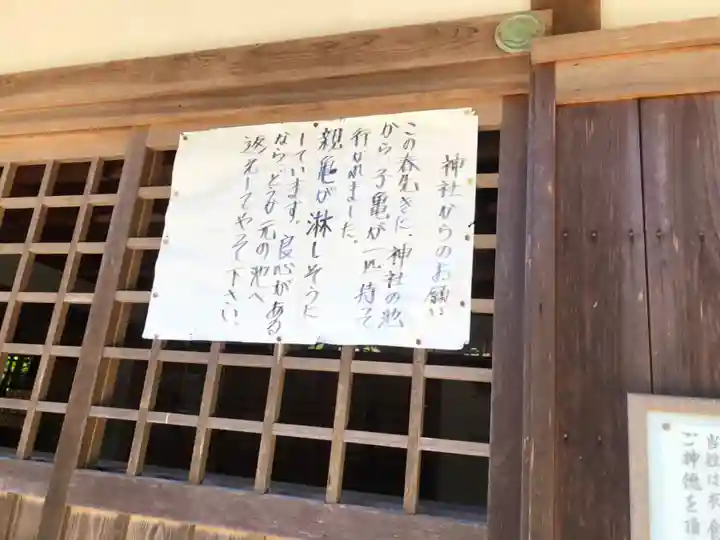 神社からのお願い
この春先きに、神社の池
から子亀が一匹持って
行かれました。
親亀が淋しそうに
しています。良心がある
ならどうか元の池へ
返えしてやって下さい。
当社は衣食
ご神徳を頂